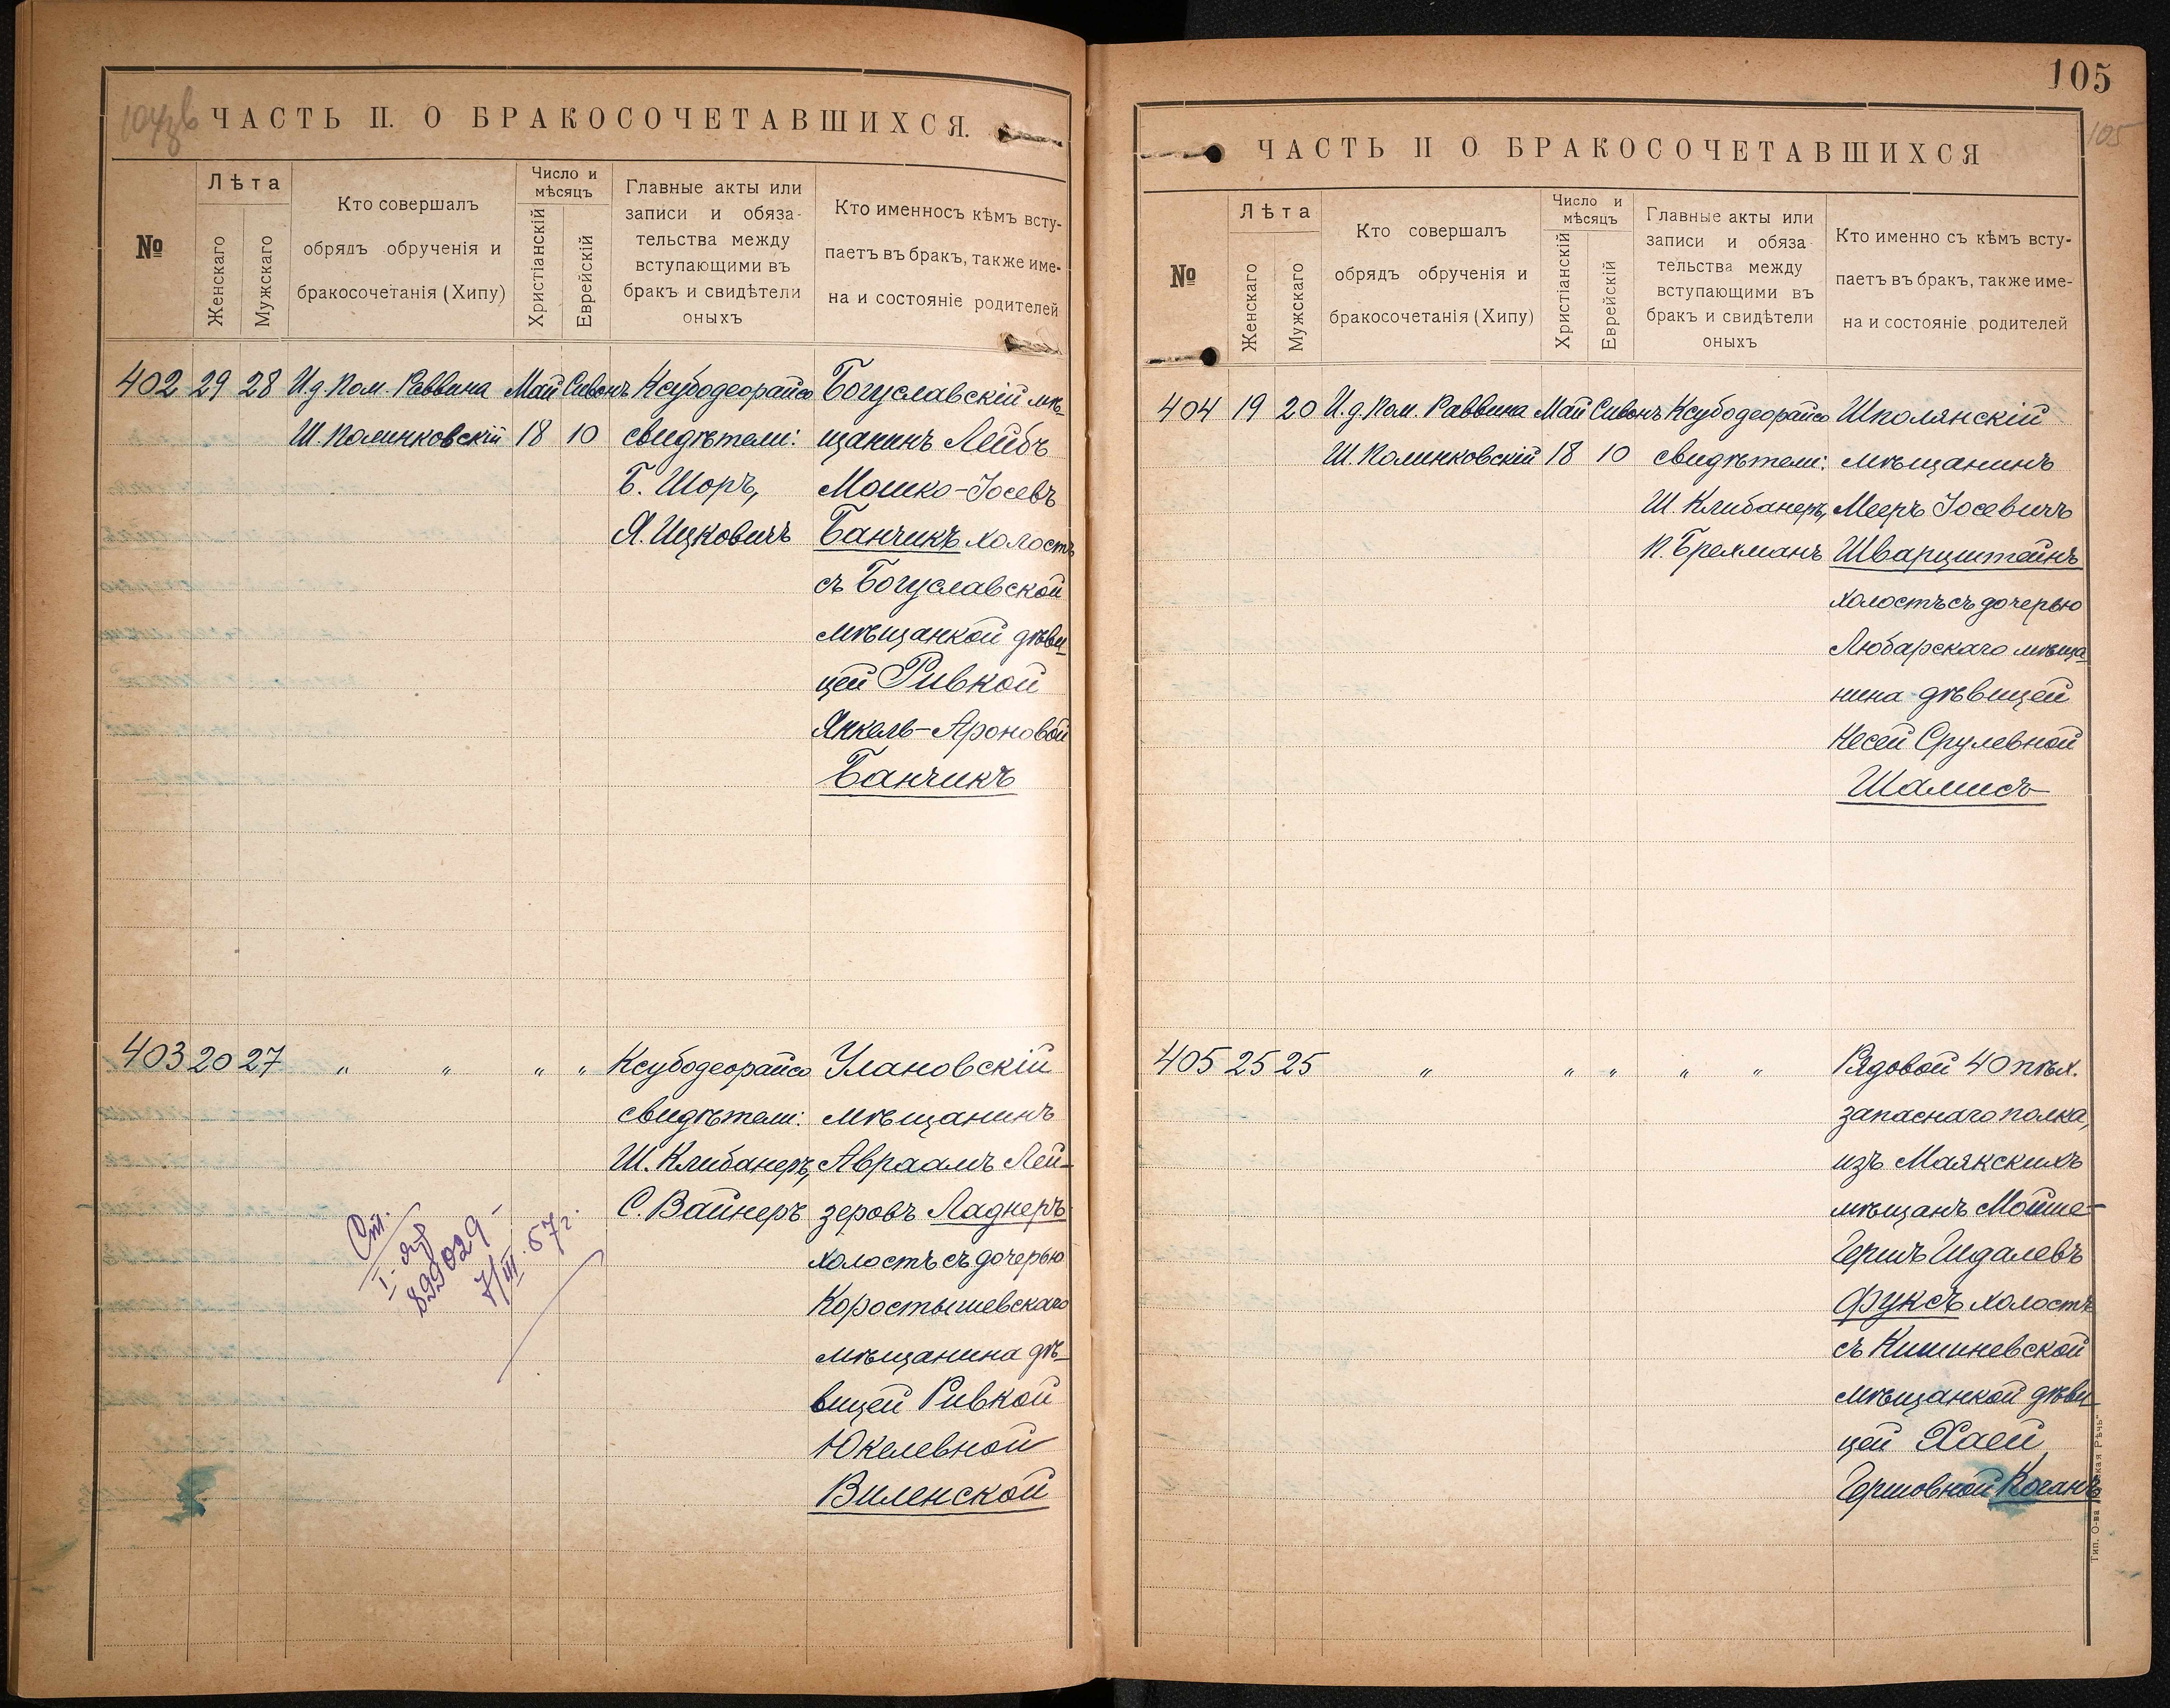 104 зв
ЧАСТЬ II. О БРАКОСОЧЕТАВШИХСЯ.
№
Лѣта
Женскаго
Мужскаго
Кто совершалъ
обрядъ обрученія и
бракосочетанія (Хипу)
Число и
мѣсяцъ
Христіанскій
Еврейскій
Главные акты или
записи и обяза-
тельства между
вступающими въ
бракъ и свидѣтели
оныхъ
Кто именносъ кѣмъ всту-
паетъ въ бракъ, также име-
на и состояніе родителей
402 29 28 И.д. Пом. Раввина Май Сивонъ Ксубодеорайсо Богуславскій мѣ-
Ш. Полинковскій 18 10 свидѣтели: щанинъ Лейбъ
Б. Шоръ, Мошко-Іосевъ
Я. Ицковичъ Банчикъ холостъ
съ Богуславской
мѣщанкой дѣви-
цей Ривкой
Янкель-Ароновой
Банчикъ
403 20 27 " " " " Ксубодеорайсо Улановскій
свидѣтели: мѣщанинъ
Ш. Клибанеръ, Авраамъ Лей-
С. Вайнеръ зеровъ Ладнеръ
холостъ съ дочерью
Коростышевскаго
мѣщанина дѣ-
вицей Ривкой
Юкелевной
Виленской
899029-
7/III 57г.
105
105
ЧАСТЬ II О БРАКОСОЧЕТАВШИХСЯ
№
Лѣта
Женскаго
Мужскаго
Кто совершалъ
обрядъ обрученія и
бракосочетанія (Хипу)
Число и
мѣсяцъ
Христіанскій
Еврейскій
Главные акты или
записи и обяза-
тельства между
вступающими въ
бракъ и свидѣтели
оныхъ
Кто именно съ кѣмъ всту-
паетъ въ бракъ, также име-
на и состояніе родителей
404 19 20 И.д. Пом. Раввина Май Сивонъ Ксубодеорайсо Шполянскій
Ш. Полинковскій 18 10 свидѣтели: мѣщанинъ
Ш. Клибанеръ, Мееръ Іосевичъ
П. Брехманъ Шварцштейнъ
холостъ съ дочерью
Любарскаго мѣща-
нина дѣвицей
Несей Срулевной
Шамисъ
405 25 25 " " " " " Рядовой 40 пѣх.
запаснаго полка,
изъ Маякскихъ
мѣщанъ Мойше-
Гершъ Шдалевъ
Фуксъ холостъ
съ Кишиневской
мѣщанкой дѣви-
цей Хаей
Гершовной Коганъ